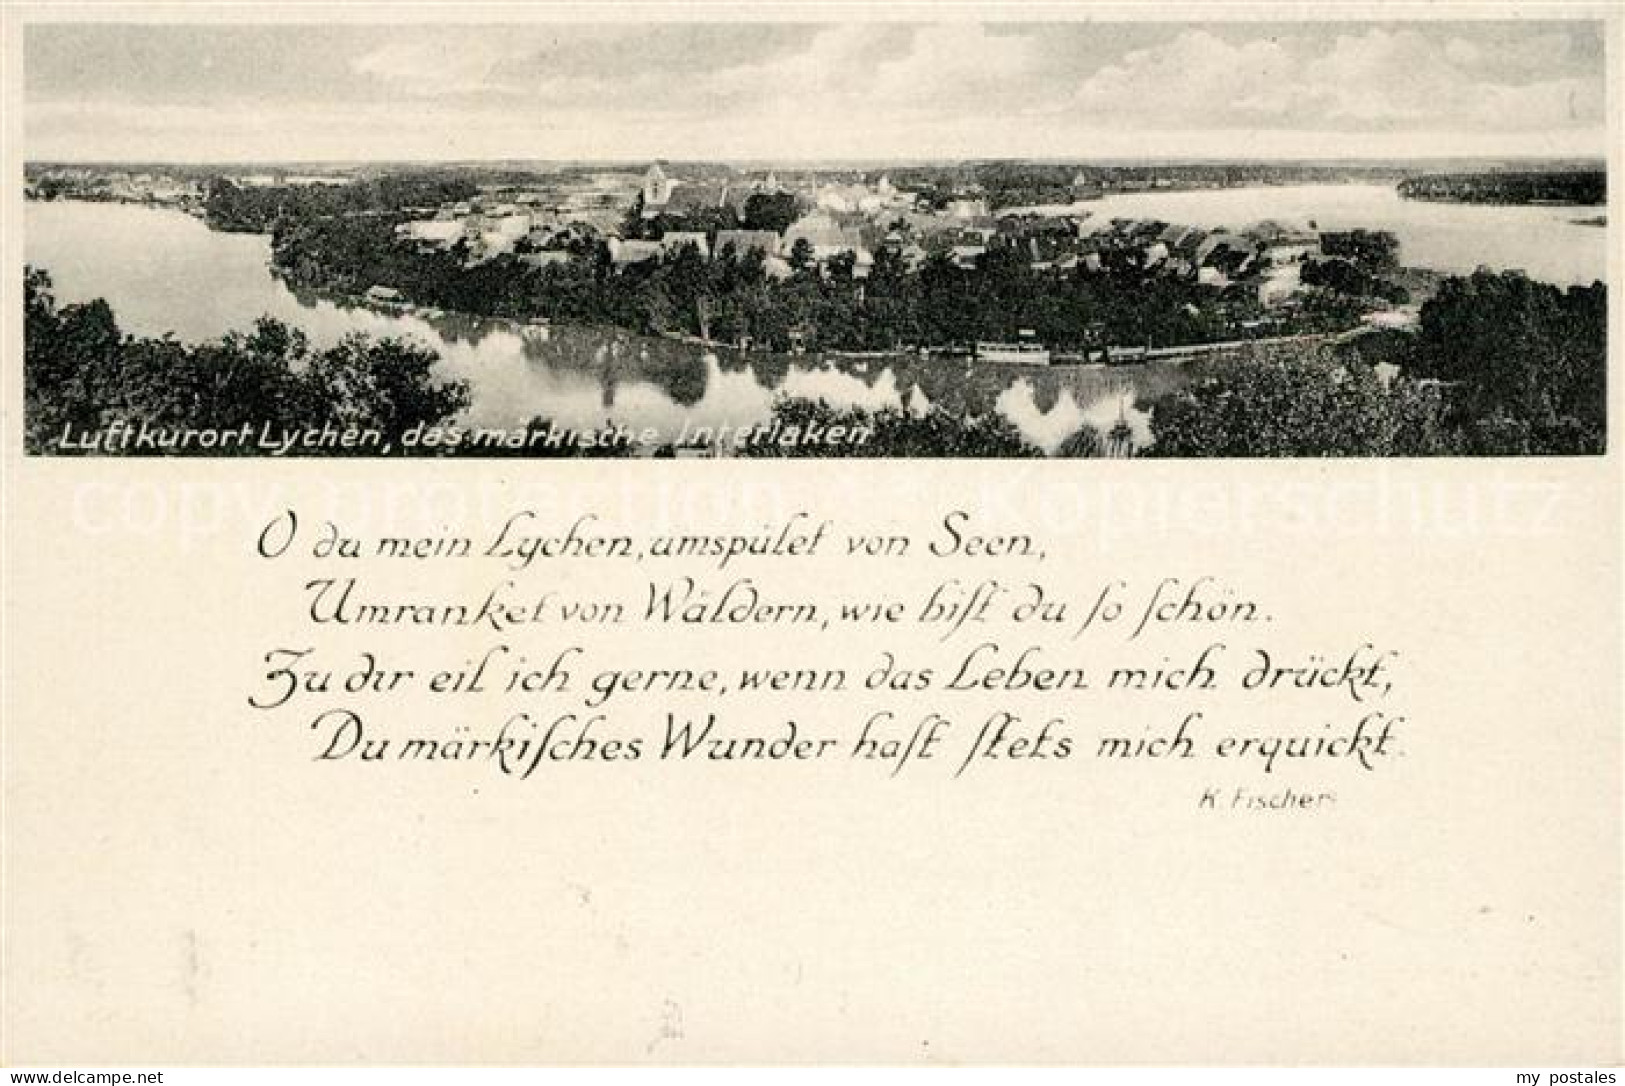 Luftkurort Lychen, das märkische Interlaken
copy protection ** Kopierschutz
O du mein Lychen, umspület von Seen,
Umranket von Wäldern, wie biſt du ſo ſchön.
Zu dir eil ich gerne, wenn das Leben mich drückt,
Du märkiſches Wunder haſt ſtets mich erquickt.
K. Fischer
delcampe.net
my_postales